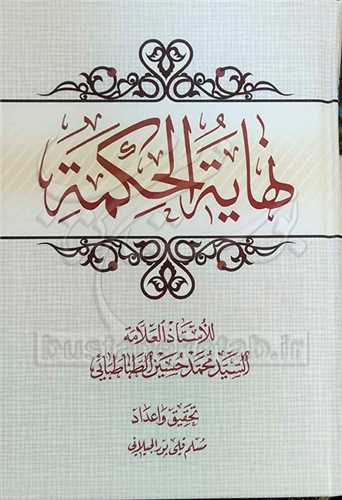 نهاية الحكمة
للأستاذ العلامة
السيد محمد حسين الطباطبائي
تحقيق وإعداد
مسلم قلي پور الجيلاني